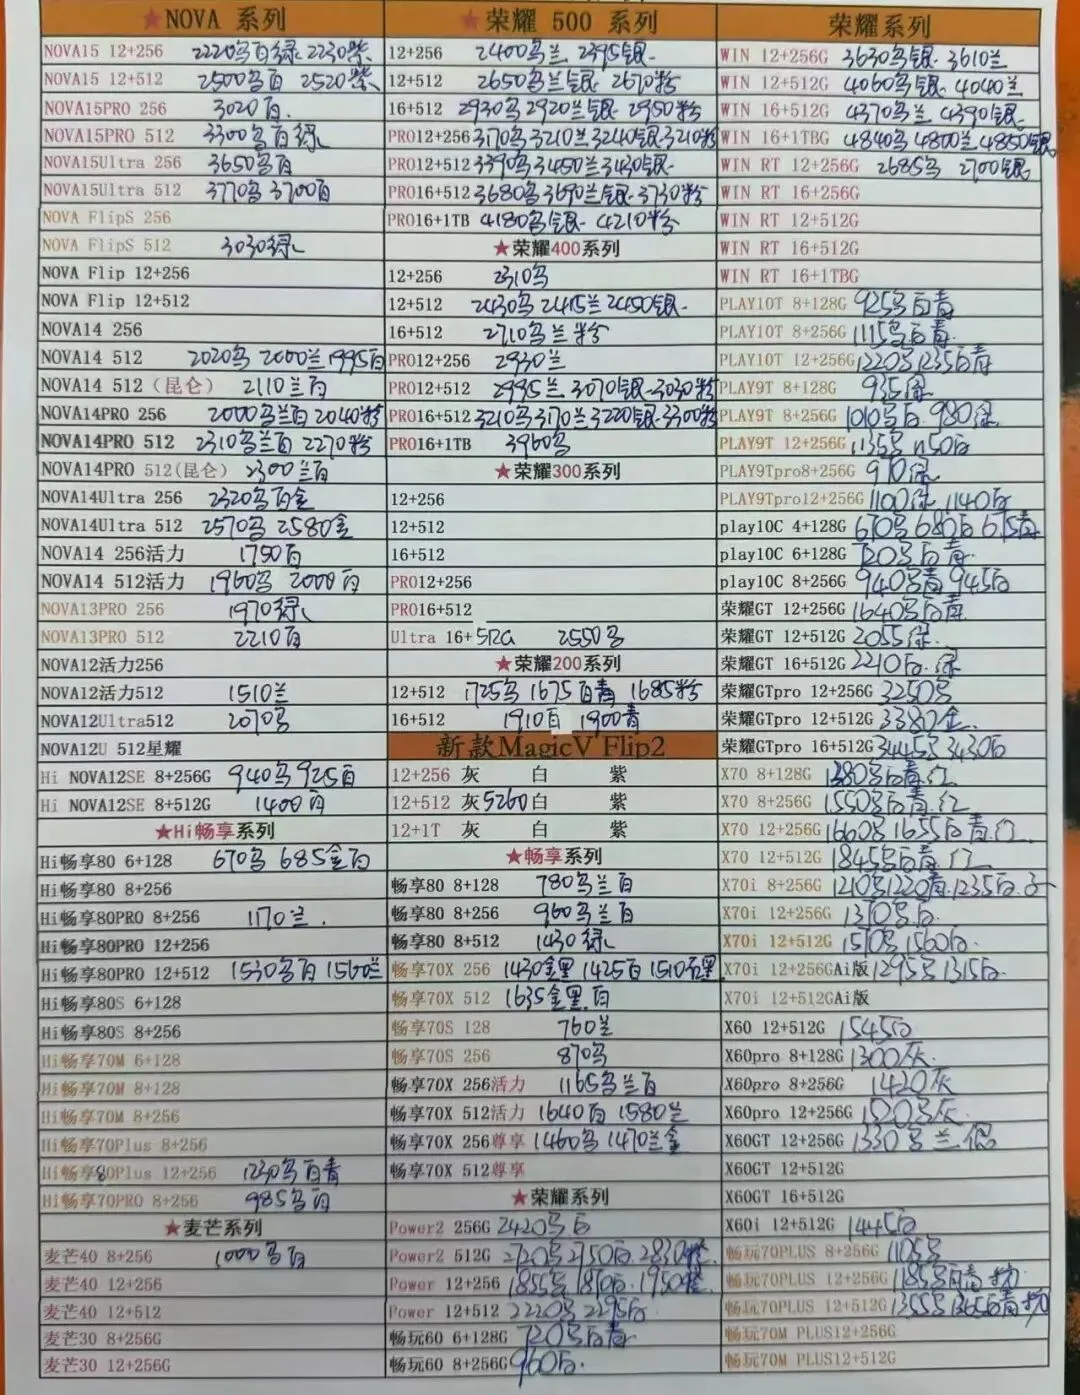 ★NOVA 系列
NOVA15 12+256 2220乌白绿 2230紫
NOVA15 12+512 2500乌白 2520紫
NOVA15PRO 256 3020白.
NOVA15PRO 512 3300乌白绿
NOVA15Ultra 256 3650乌白
NOVA15Ultra 512 3770乌 3700白
NOVA FlipS 256
NOVA FlipS 512 3030绿
NOVA Flip 12+256
NOVA Flip 12+512
NOVA14 256
NOVA14 512 2020乌 2000兰 1995白
NOVA14 512（昆仑） 2110兰白
NOVA14PRO 256 2000乌兰白 2040粉
NOVA14PRO 512 2310乌兰白 2270粉
NOVA14PRO 512(昆仑) 2300兰白
NOVA14Ultra 256 2320乌白金
NOVA14Ultra 512 2570乌 2580金
NOVA14 256活力 1750白
NOVA14 512活力 1960乌 2000白
NOVA13PRO 256 1970绿
NOVA13PRO 512 2210白
NOVA12活力256
NOVA12活力512 1510兰
NOVA12Ultra512 2070乌
NOVA12U 512星耀
Hi NOVA12SE 8+256G 940乌 925白
Hi NOVA12SE 8+512G 1400白
★Hi畅享系列
Hi畅享80 6+128 670乌 685金白
Hi畅享80 8+256
Hi畅享80PRO 8+256 1170兰.
Hi畅享80PRO 12+256
Hi畅享80PRO 12+512 1530乌白 1560兰
Hi畅享80S 6+128
Hi畅享80S 8+256
Hi畅享70M 6+128
Hi畅享70M 8+128
Hi畅享70M 8+256
Hi畅享70Plus 8+256
Hi畅享80Plus 12+256 1230乌白青
Hi畅享70PRO 8+256 985乌白
★麦芒系列
麦芒40 8+256 1000乌白
麦芒40 12+256
麦芒40 12+512
麦芒30 8+256G
麦芒30 12+256G
★荣耀 500 系列
12+256 2400乌兰 2395银.
12+512 2650乌兰银. 2670粉
16+512 2930乌 2920兰银. 2950粉
PRO12+256 3170乌 3210兰 3240银 3210粉
PRO12+512 3390乌 3450兰 3430银.
PRO16+512 3680乌 3690兰银. 3730粉
PRO16+1TB 4180乌银. 4210粉
★荣耀400系列
12+256 2310乌
12+512 2430乌 2415兰 2450银.
16+512 2710乌兰粉
PRO12+256 2930兰
PRO12+512 2995兰. 3070银. 3030粉
PRO16+512 3210乌 3170兰 3220银. 3300粉
PRO16+1TB 3960乌
★荣耀300系列
12+256
12+512
16+512
PRO12+256
PRO16+512
Ultra 16+512G 2550乌
★荣耀200系列
12+512 1725乌 1675白青 1685粉
16+512 1910白 1900青
新款MagicV Flip2
12+256 灰 白 紫
12+512 灰5260 白 紫
12+1T 灰 白 紫
★畅享系列
畅享80 8+128 780乌兰白
畅享80 8+256 960乌兰白
畅享80 8+512 1430绿
畅享70X 256 1430金黑 1425白
畅享70X 512 1635金黑.白
畅享70S 128 760兰
畅享70S 256 870乌
畅享70X 256活力 1165乌兰白
畅享70X 512活力 1640白 1580兰
畅享70X 256尊享 1460乌 1470兰金
畅享70X 512尊享
★荣耀系列
Power2 256G 2420乌白
Power2 512G 2720乌 2750白. 2830橙.
Power 12+256 1855乌 1870白. 1950橙.
Power 12+512 2220乌 2295白
畅玩60 6+128G 720乌白青
畅玩60 8+256G 960白.
荣耀系列
WIN 12+256G 3630乌银. 3610兰
WIN 12+512G 4060乌银. 4040兰
WIN 16+512G 4370乌兰 4390银.
WIN 16+1TBG 4840乌 4800兰 4850银
WIN RT 12+256G 2685乌 2700银
WIN RT 16+256G
WIN RT 12+512G
WIN RT 16+512G
WIN RT 16+1TBG
PLAY10T 8+128G 925乌白青
PLAY10T 8+256G 1115乌白青.
PLAY10T 12+256G 1220乌 1235白青
PLAY9T 8+128G 935绿
PLAY9T 8+256G 1010乌白 980绿
PLAY9T 12+256G 1135乌 1150白
PLAY9Tpro8+256G 970绿
PLAY9Tpro12+256G 1100绿 1140白
play10C 4+128G 670乌 680白 675青
play10C 6+128G 720乌白青.
play10C 8+256G 940乌青 945白
荣耀GT 12+256G 1640乌白青
荣耀GT 12+512G 2055绿.
荣耀GT 16+512G 2210白.绿
荣耀GTpro 12+256G 3250乌
荣耀GTpro 12+512G 3380金.
荣耀GTpro 16+512G 3445乌 3430白
X70 8+128G 1380乌白青.红
X70 8+256G 1550乌白青.红
X70 12+256G 1660乌 1655白青.红
X70 12+512G 1845乌白青.红
X70i 8+256G 1210乌 1220青. 1235白.
X70i 12+256G 1370乌白.
X70i 12+512G 1510乌 1560白.
X70i 12+256GAi版 1295乌 1315白.
X70i 12+512GAi版
X60 12+512G 1545白
X60pro 8+128G 1300灰.
X60pro 8+256G 1420灰
X60pro 12+256G 1520乌灰.
X60GT 12+256G 1330乌兰银
X60GT 12+512G
X60GT 16+512G
X60i 12+512G 1445白
畅玩70PLUS 8+256G 1105乌
畅玩70PLUS 12+256G 1185乌白青
畅玩70PLUS 12+512G 1355乌 1365白青
畅玩70M PLUS12+256G
畅玩70M PLUS12+512G